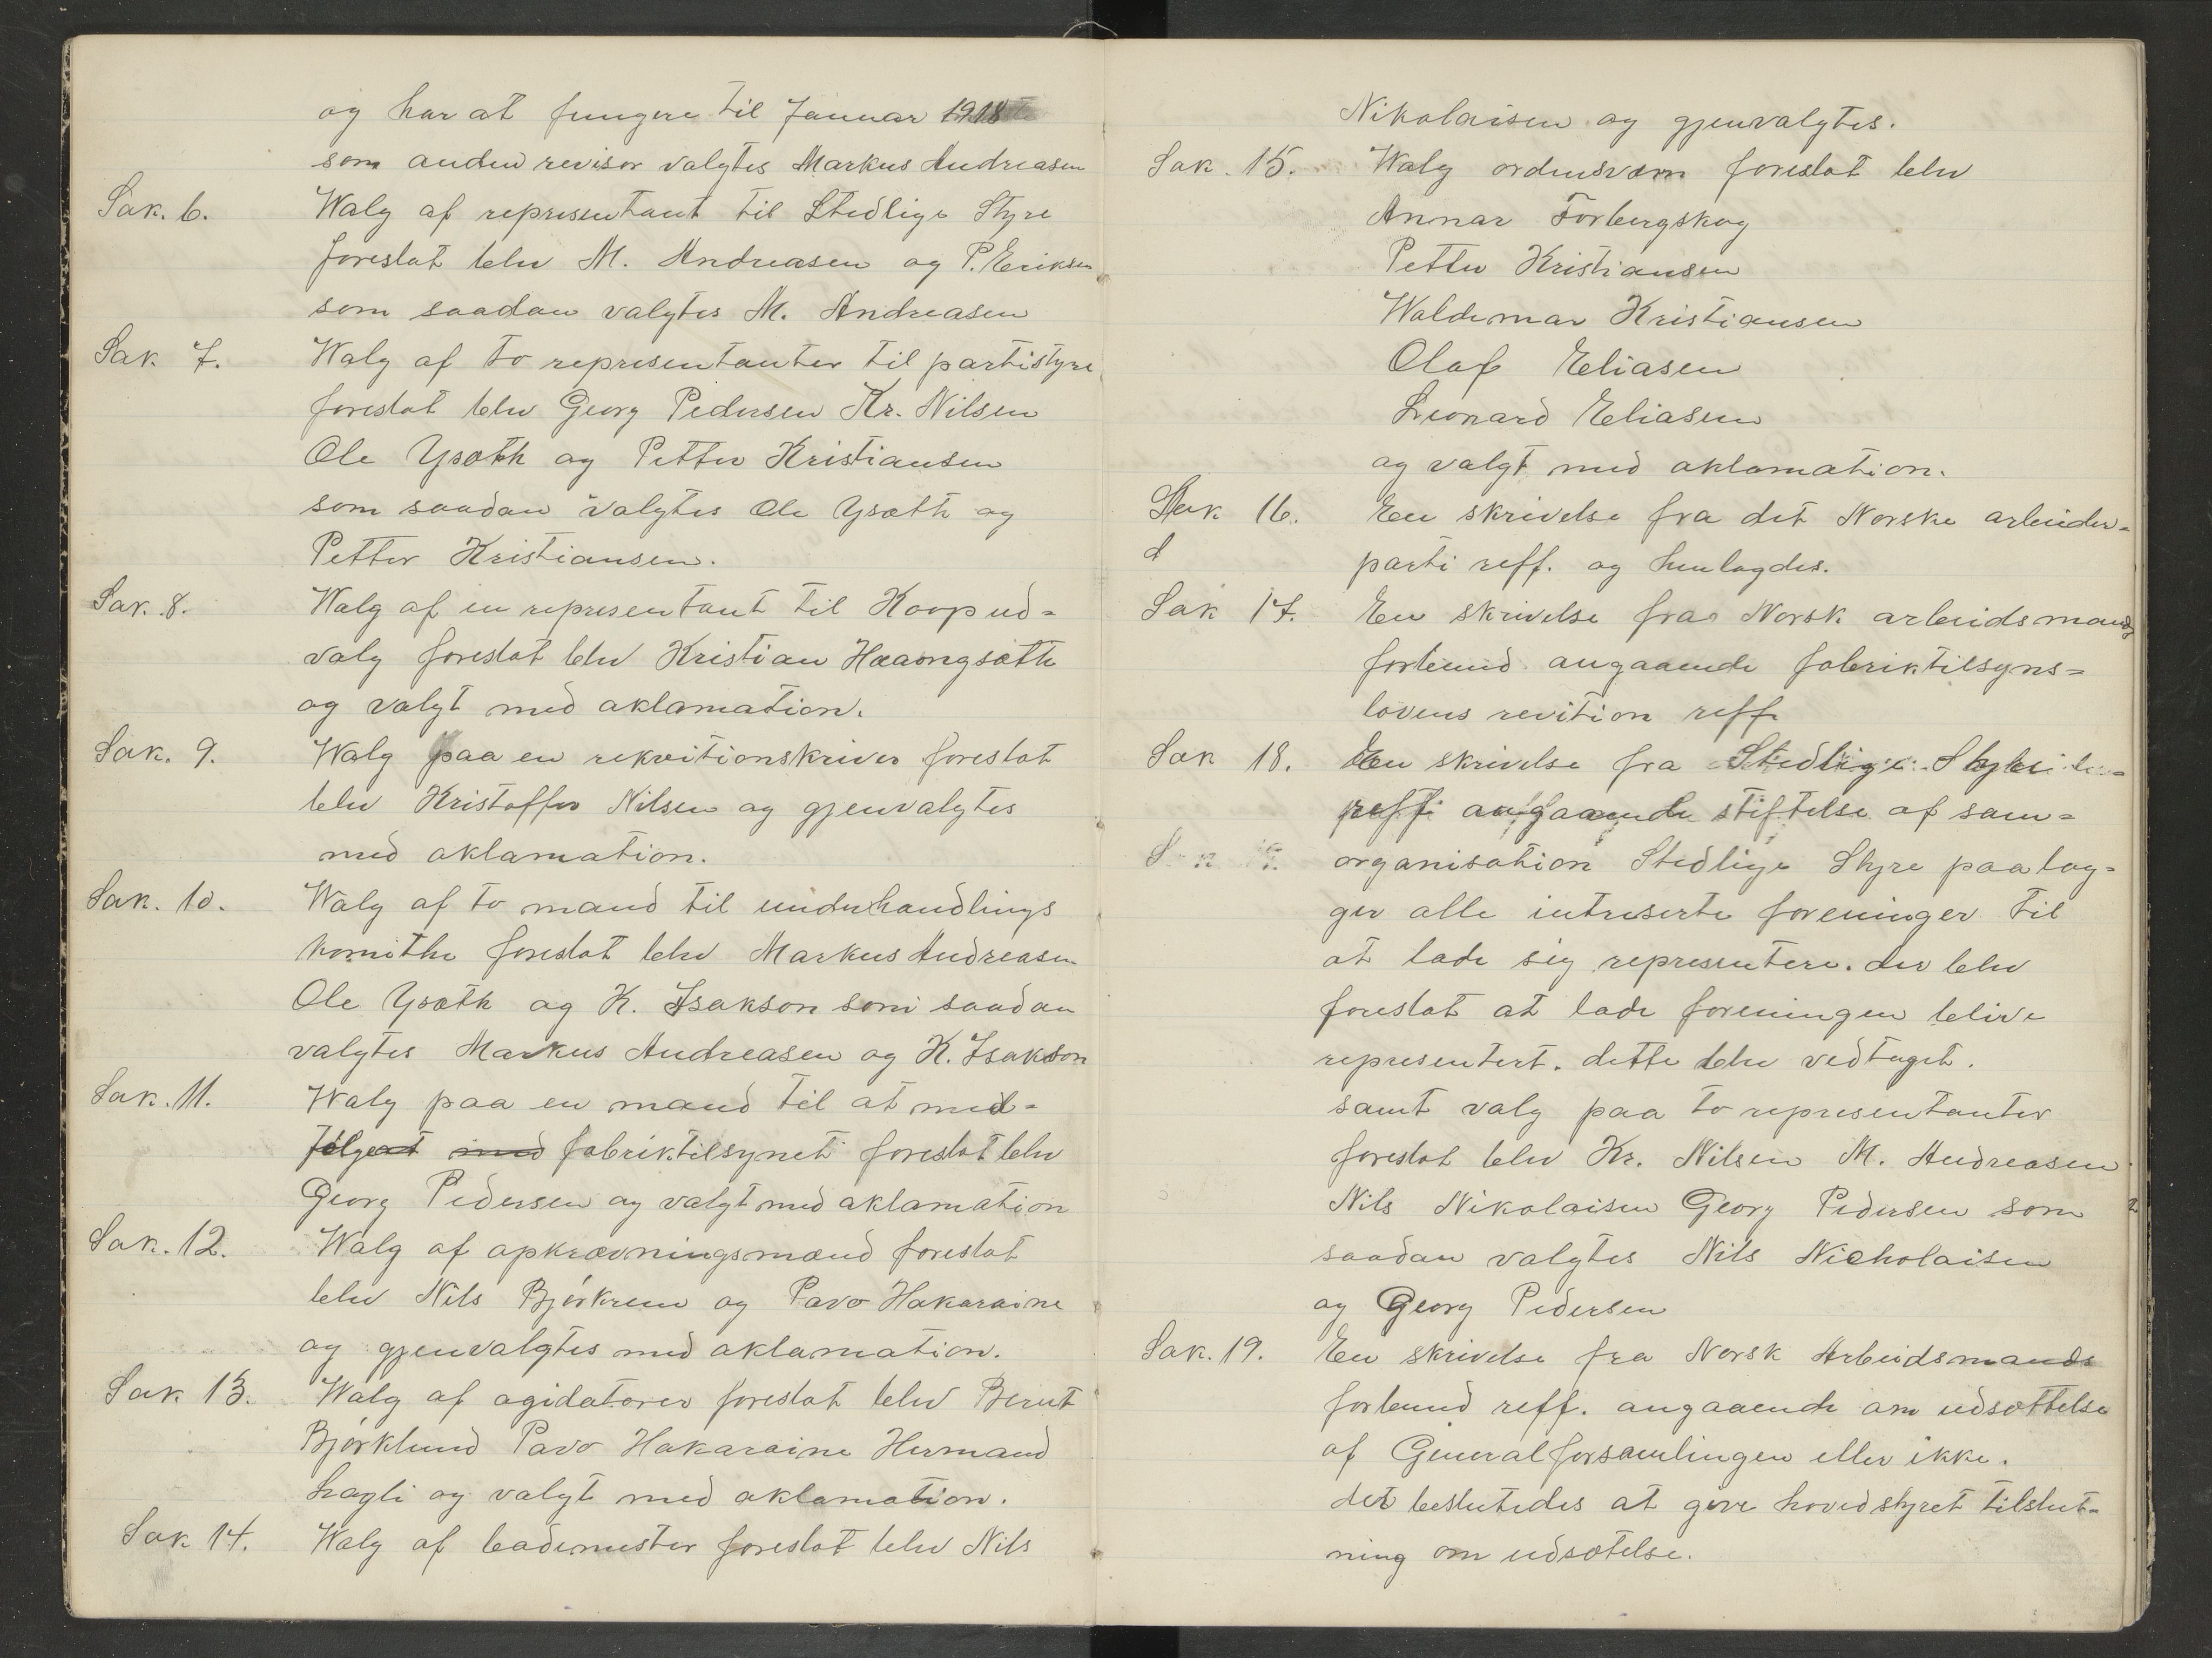 og har at fungere til Januar 1918
som anden revisor valgtes Markus Andreasen
Sak. 6. Walg af representant til Stedlige Styre
foreslat blev M. Andreasen og P. Eriksen
som saadan valgtes M. Andreasen
Sak 7. Walg af to representanter til partistyre
foreslat blev Georg Pedersen Kr. Nilsen
Ole Ysæth og Petter Kristiansen
som saadan valgtes Ole Ysæth og
Petter Kristiansen.
Sak. 8. Walg af en representant til Koop ud=
valg foreslat blev Kristian Haaongsæth
og valgt med aklamation.
Sak. 9. Walg paa en rekvitionskriver foreslat
blev Kristoffer Nilsen og gjenvalgtes
med aklamation.
Sak. 10. Walg af to mand til underhandlings
komithe foreslat blev Markus Andreasen
Ole Ysæth og K. Isakson som saadan
valgtes Markus Andreasen og K. Isakson
Sak. 11. Walg paa en mand til at med=
følge med fabriktilsynet foreslat blev
Georg Pedersen og valgt med aklamation
Sak. 12. Walg af opkrævningsmænd foreslat
blev Nils Bjørkrem og Pavo Hakaraine
og gjenvalgtes med aklamation.
Sak 13. Walg af agidatorer foreslat blev Bernt
Bjørklund Pavo Hakaraine Hermand
hagli og valgt med aklamation.
Sak 14. Walg af bademester foreslat blev Nils
Nikolaisen og gjenvalgtes.
Sak. 15. Walg ordensværn foreslat blev
Annar Forbergskog
Petter Kristiansen
Waldemar Kristiansen
Olaf Eliasen
Leonard Eliasen
og valgt med aklamation.
Sak 16. En skrivelse fra det Norske arbeider=
d parti reff. og henlagdes.
Sak 17. En skrivelse fra Norsk arbeidsmands
forbund angaaende fabriktilsyns=
lovens revition reff
Sak 18. En skrivelse fra Stedlige Styre
reff angaaende stiftelse af sam=
organisation Stedlige Styre paalag=
ger alle intreserte foreninger til
at lade sig representere. der blev
foreslat at lade foreningen blive
representert. dette blev vedtaget.
samt valg paa to representanter
foreslat blev Kr. Nilsen M. Andreasen
Nils Nikolaisen Georg Pedersen som
saadan valgtes Nils Nicholaisen
og Georg Pedersen
Sak. 19. En skrivelse fra Norsk Arbeidsmands
forbund reff. angaaende om udsættelse
af Generalforsamlingen eller ikke.
det beslutedes at give hovedstyret tilslut=
ning om udsætelse.